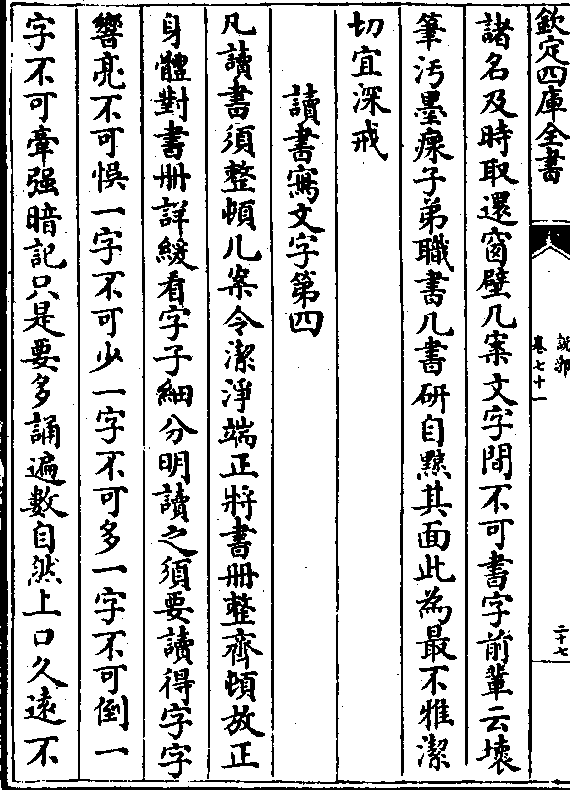 欽定四庫全書
說郛
卷七十一
二十七
諸名及時取還窗壁几案文字間不可書字前輩云壞
筆汚墨瘝子弟職書几書研自黥其面此為最不雅潔
切宜深戒
讀書寫文字第四
凡讀書須整頓几案令潔淨端正將書册整齊頓放正
身體對書册詳緩看字子細分明讀之須要讀得字字
響亮不可悞一字不可少一字不可多一字不可倒一
字不可牽强暗記只是要多誦遍數自然上口久遠不